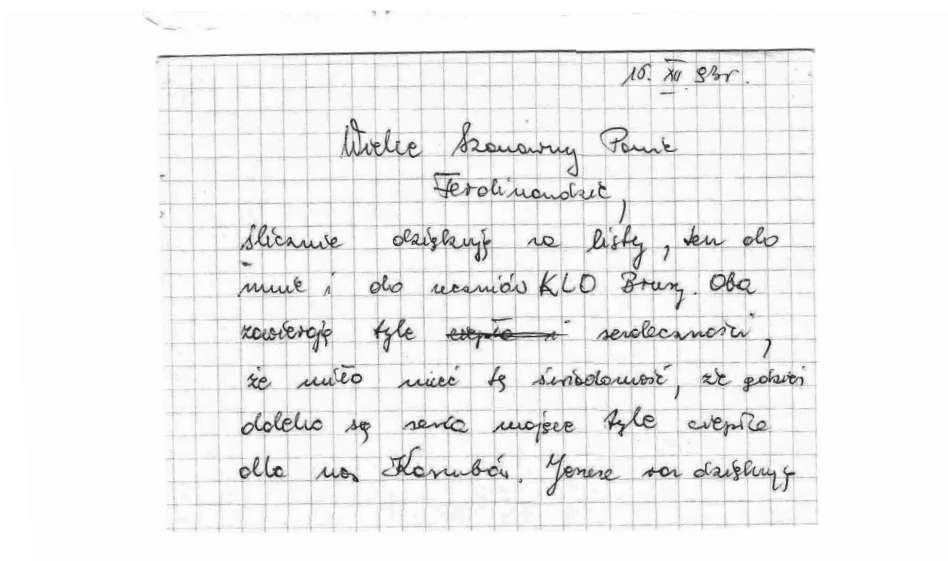 16. XII. 93r.
Wielce Szanowny Panie
Ferdinandzie,
ślicznie dziękuję za listy, ten do
mnie i do uczniów KLO Brusy. Oba
zawierają tyle ciepła i serdeczności,
że miło mieć tę świadomość, że gdzieś
daleko są serca mające tyle ciepła
dla nas Kaszubów. Jeszcze raz dziękuję